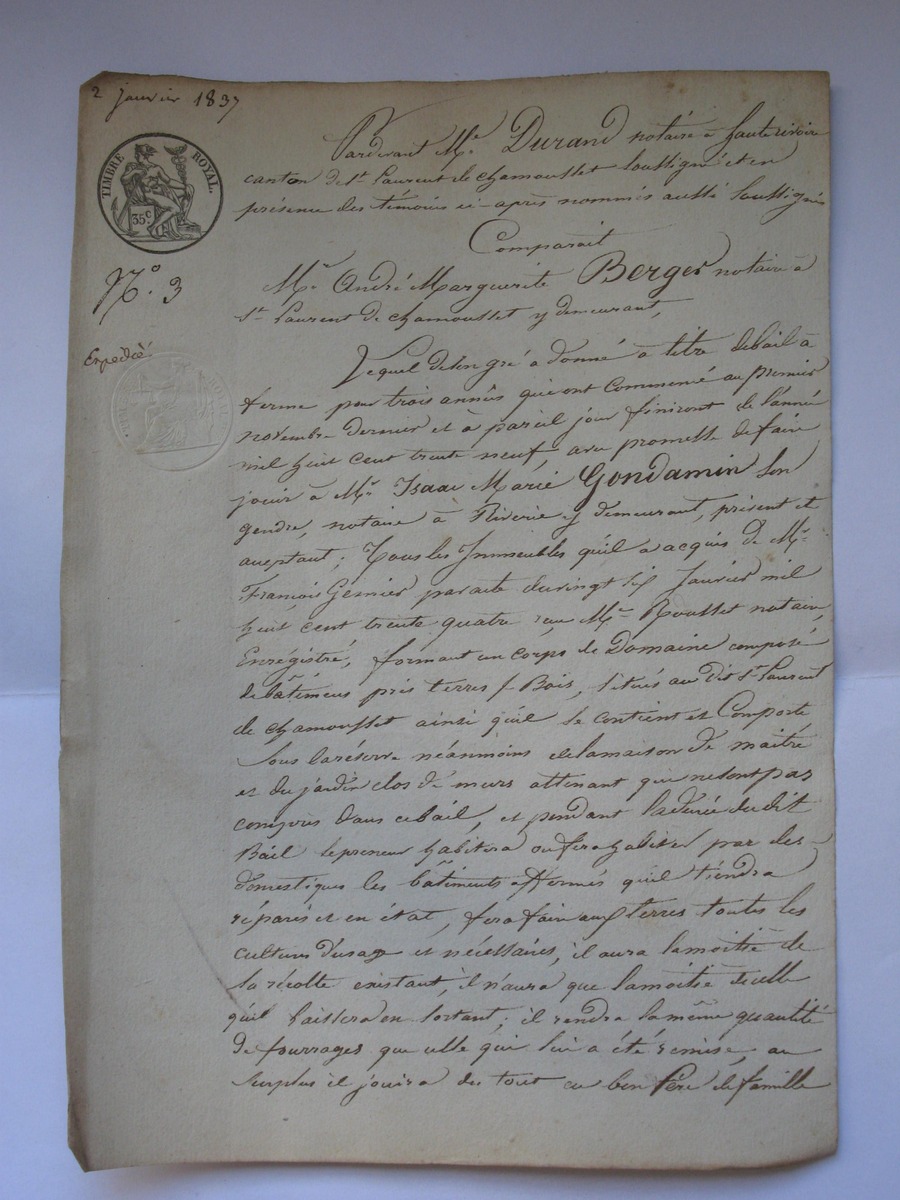 2 Janvier 1837
TIMBRE ROYAL.
35c
No. 3
Expedié
Pardevant Me. Durand notaire à hauterivoire
canton de St. Laurent de chamousset soussigné et en
présence des témoins ci-après nommés aussi soussignés
Comparait
Mr. André Marguerite Berger notaire à
St. Laurent de chamousset y demeurant,
Lequel de son gré a donné à titre de bail à
ferme pour trois années qui ont Commencé au premier
novembre dernier et à pareil jour finiront de l'année
mil huit cent trente neuf avec promesse de faire
jouir à Mr. Isaac Marie Gondamin son
gendre, notaire à Riverie y demeurant, présent et
acceptant; Tous les Immeubles qu'il a acquis de Mr.
François Gernier par acte du vingt six Janvier mil
huit cent trente quatre reçu Me. Rousset notaire,
Enrégistré, formant un corps de Domaine composé
de bâtimens prés terres & Bois, situés au Dit St. Laurent
de chamousset ainsi qu'il se contient et Comporte
Sous la réserve néanmoins de la maison de maitre
et du jardin clos de murs attenant qui ne sont pas
compris dans ce bail, et pendant la durée du dit
Bail le preneur habitera ou fera habiter par des
domestiques les bâtiments affermés qu'il tiendra
réparés et en état, fera faire aux terres toutes les
cultures d'usage et nécessaires, il aura la moitié de
la récolte existant, il n'aura que la moitié de celle
qu'il laissera en sortant; il rendra la même quantité
de fourrages que celle qui lui a été remise, au
surplus il jouira du tout en bon Père de famille